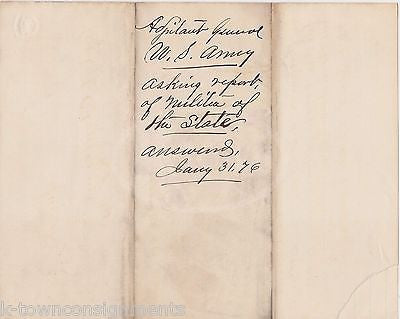 Adjutant General
U. S. Army
asking report,
of Militia of
the State,
answered,
Jany 31. 76
k-townconsignments